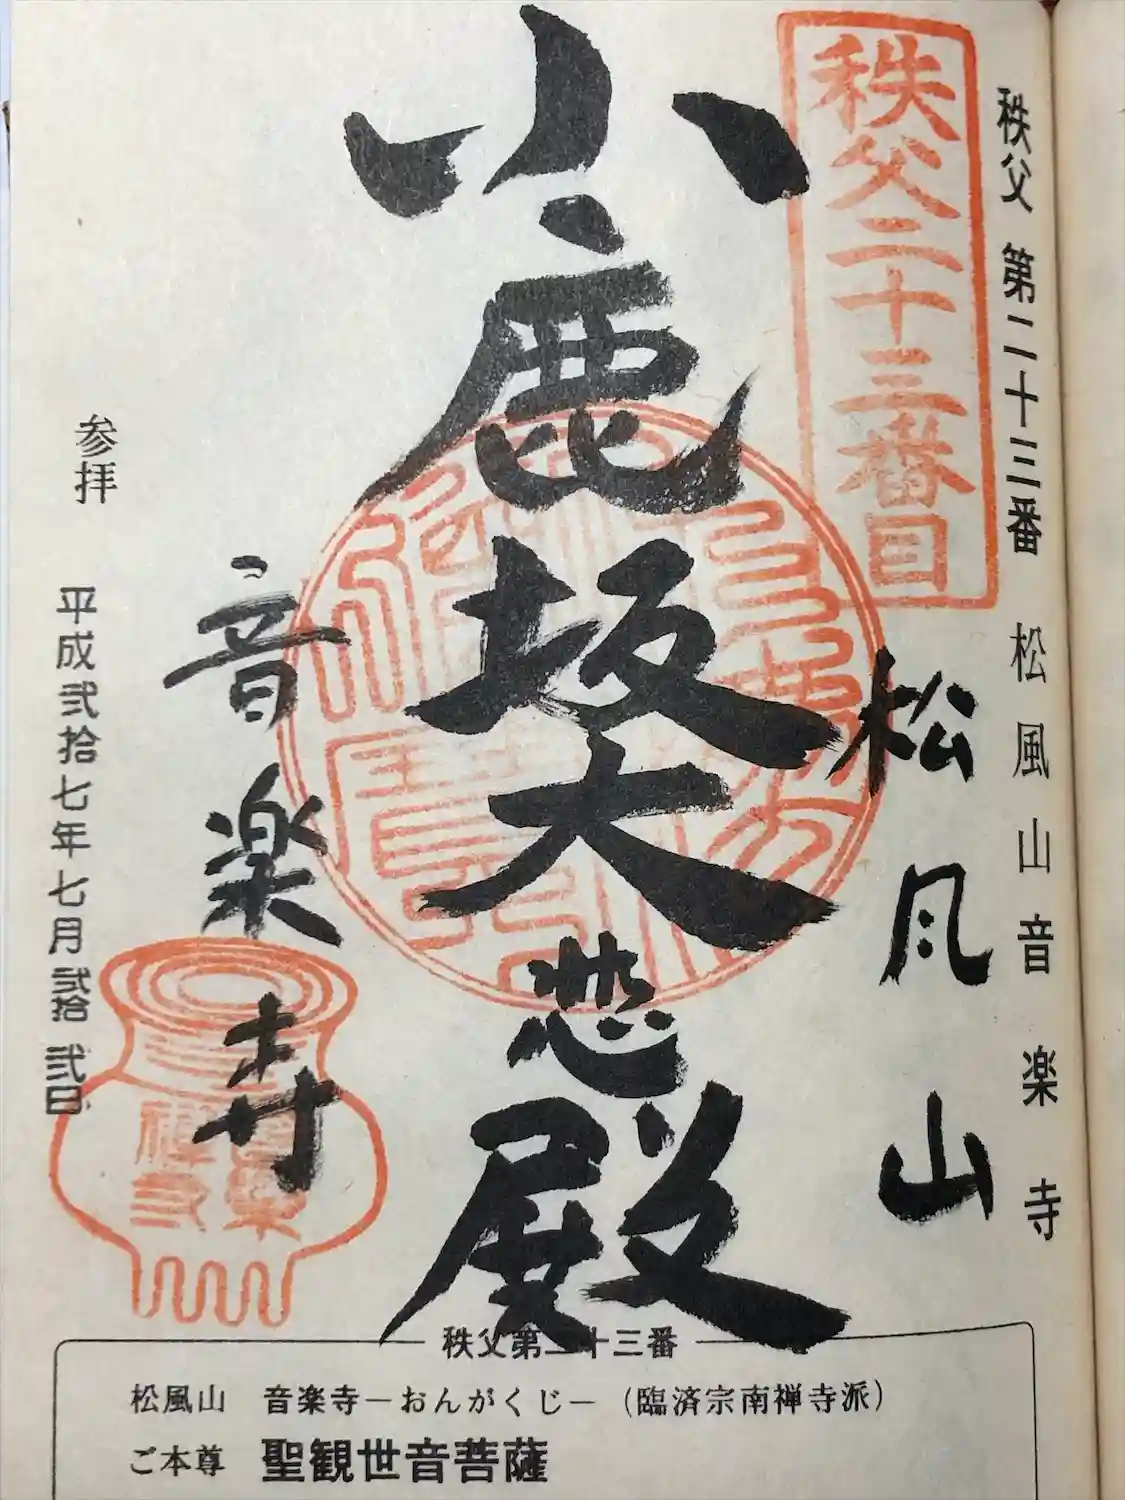 秩父 第二十三番 松風山音楽寺
秩父二十三番目
松風山
小鹿坂大悲殿
音楽寺
参拝 平成弐拾七年七月弐拾弐日
秩父第二十三番
松風山 音楽寺−おんがくじ−（臨済宗南禅寺派）
ご本尊 聖観世音菩薩